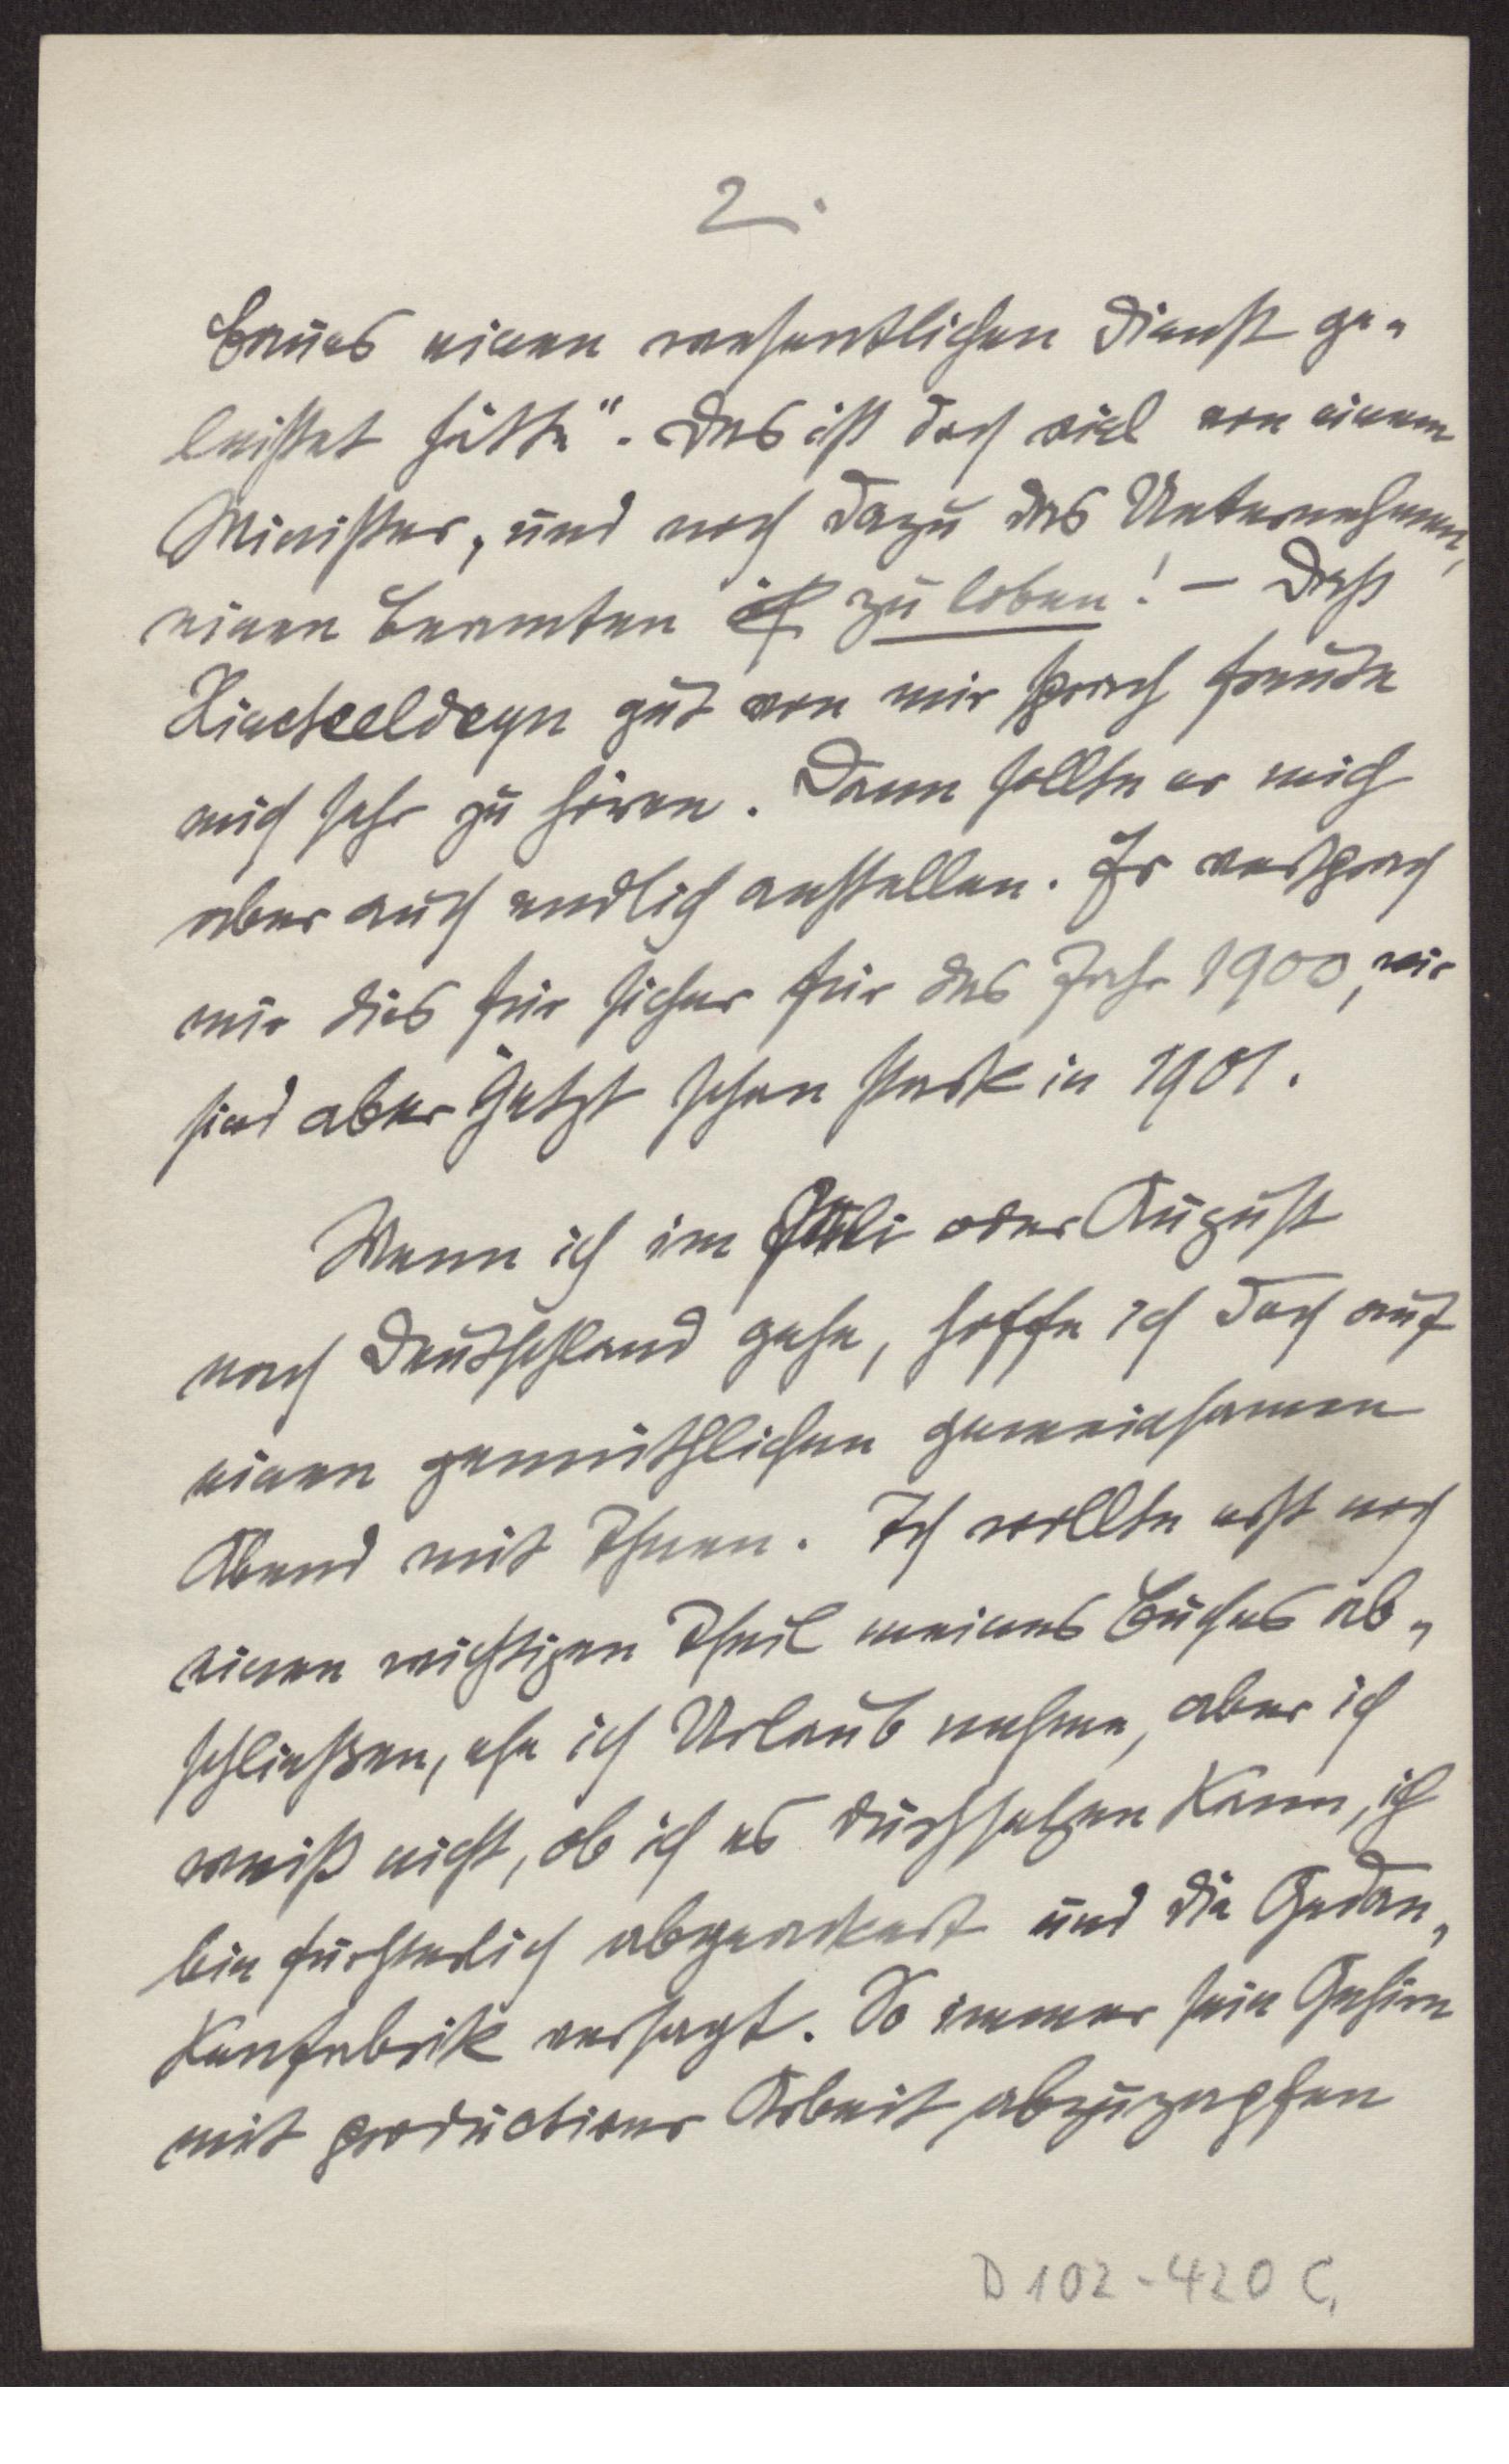 2.
baues einen wesentlichen Dienst ge-
leistet hätte". Das ist doch viel von einem
Minister, und noch dazu das Unternehmen,
einen Beamten zu loben! – Daß
Hinckeldeyn gut von mir sprach freute
mich sehr zu hören. Dann sollte er mich
aber auch endlich anstellen. Er versprach
mir dies für sicher für das Jahr 1900, wir
sind aber jetzt schon stark in 1901.
Wenn ich im Juli oder August
nach Deutschland gehe, hoffe ich doch auf
einen gemüthlichen gemeinsamen
Abend mit Ihnen. Ich wollte erst noch
einen wichtigen Theil meines Buches ab-
schließen, ehe ich Urlaub nehme, aber ich
weiß nicht, ob ich es durchsetzen kann, ich
bin fürchterlich abgerackert und die Gedan-
kenfabrik versagt. So immer sein Gehirn
mit productiver Arbeit abzuzapfen
D 102-420 C,